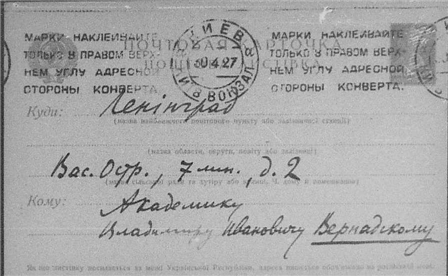 МАРКИ НАКЛЕИВАЙТЕ
ТОЛЬКО В ПРАВОМ ВЕРХ-
НЕМ УГЛУ АДРЕСНОЙ
СТОРОНЫ КОНВЕРТА.
ПОЧТОВАЯ КАРТОЧКА
КИЕВ
4.27
ВОКЗАЛ
МАРКИ НАКЛЕИВАЙТЕ
ТОЛЬКО В ПРАВОМ ВЕРХ-
НЕМ УГЛУ АДРЕСНОЙ
СТОРОНЫ КОНВЕРТА.
Куди: Ленінград
(назва найближчого поштового пункту або залізничної станції)
(назва области, округи, повіту або волости)
Вас. Остр., 7 лин., д. 2
Кому: Академику
Владимиру Ивановичу Вернадскому